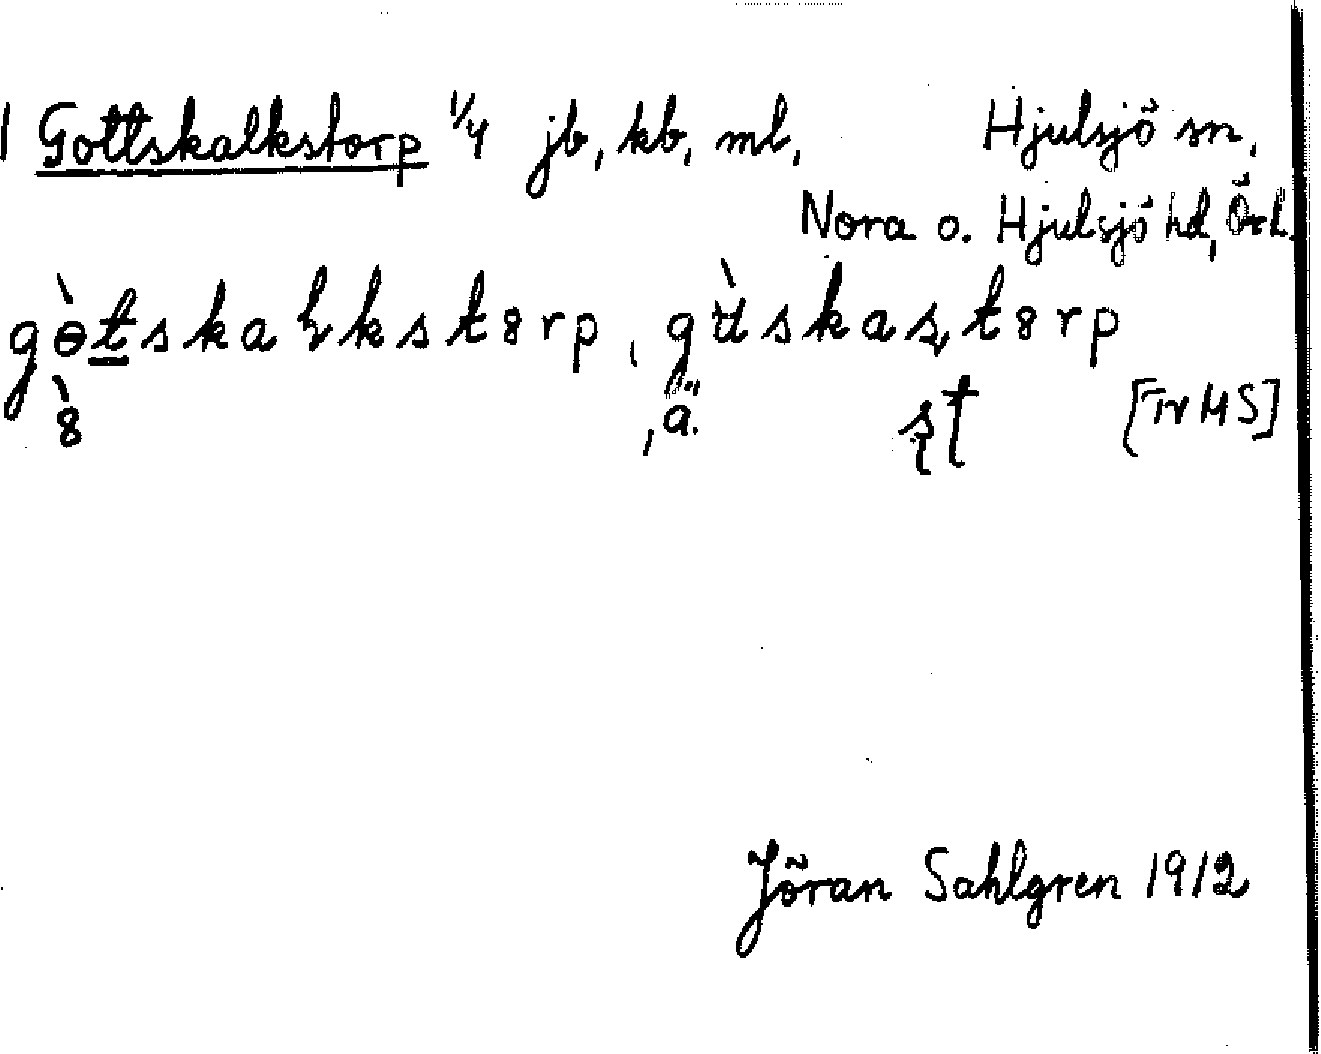 1 Gottskalkstorp 1/4 jb, kb, ml, Hjulsjö sn,
Nora o. Hjulsjö hd, Örl.
gɵ̀tskaɭkst8rp, gʉ̀skaʂt8rp
8̀ , ä. ʂt [Tv HS]
Jöran Sahlgren 1912